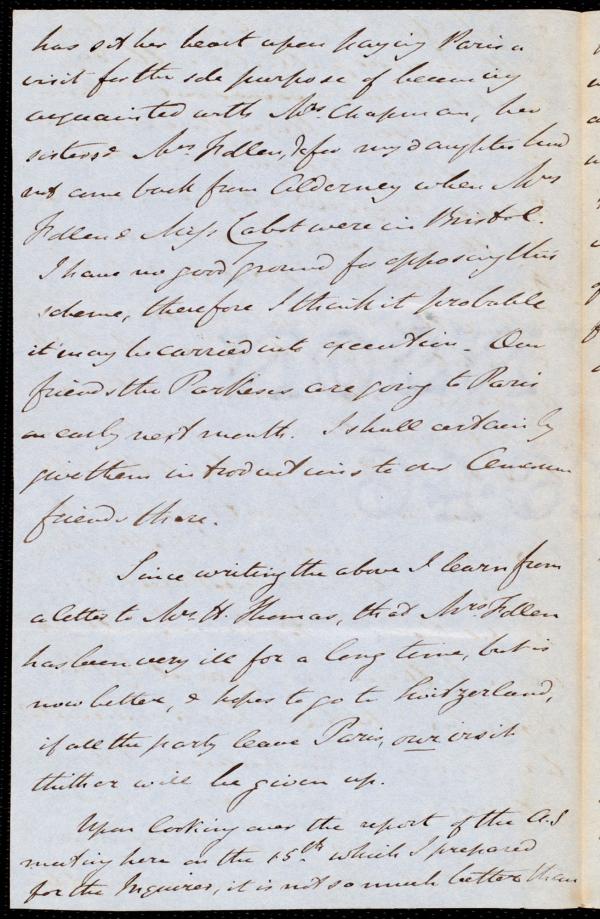 has set her heart upon paying Paris a
visit for the sole purpose of becoming
acquainted with Mrs. Chapman, her
sisters & Mrs. Follen, for my daughter had
not come back from Alderney when Mrs
Follen & Miss Cabot were in Bristol.
I have no good ground for opposing this
scheme, therefore I think it probable
it may be carried into execution. Our
friends the Parkeses are going to Paris
on early next month. I shall certainly
give them introductions to our American
friends there.
Since writing the above I learn from
a letter to Mrs. H. Thomas, that Mrs. Follen
has been very ill for a long time, but is
now better, & hopes to go to Switzerland,
if all the party leave Paris, our visit
thither will be given up.
Upon looking over the report of the A.S
meeting here on the 15th. which I prepared
for the Inquirer, it is not so much better than